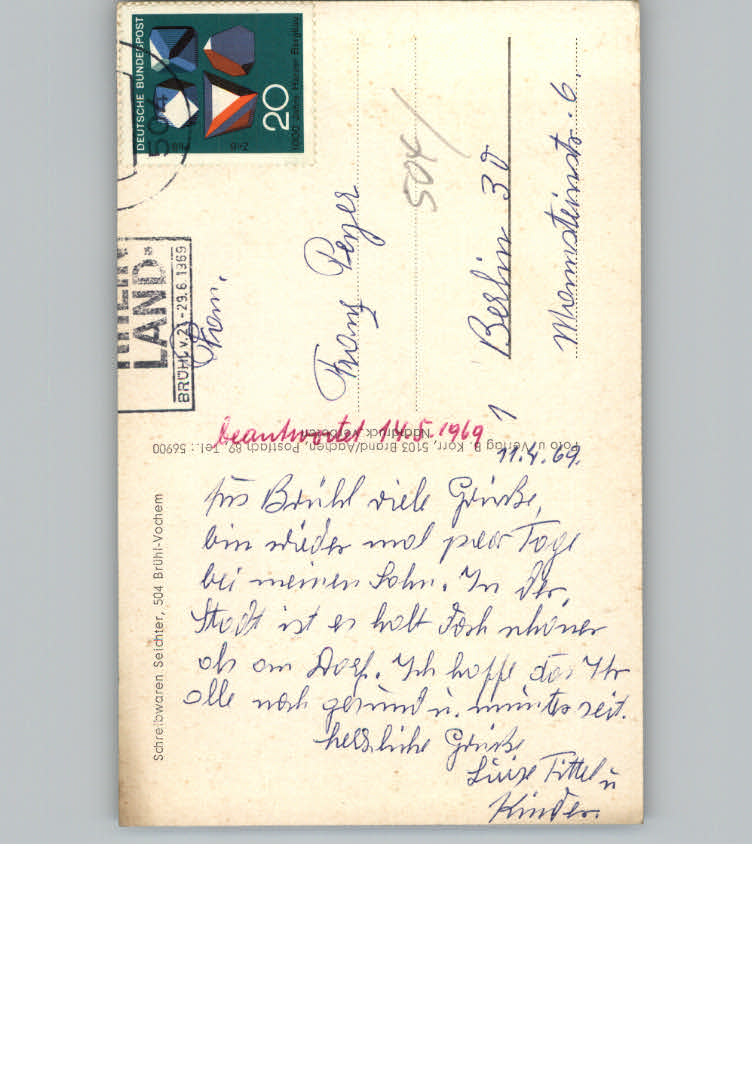 DEUTSCHE BUNDESPOST
20
1000 Jahre Harzer Bergbau
504
LAND
BRÜHL v. 21.-29.6.1969
Fam.
Franz Peyer
504/
1 Berlin 30
str. 6.
beantwortet 14.5.1969
Foto u. Verlag B. Korr, 5103 Brand/Aachen, Postfach 89, Tel.: 56900
Nachdruck verboten
Schreibwaren Seichter, 504 Brühl-Vochem
11.4.69.
Aus Brühl viele Grüße,
bin wieder mal paar Tage
bei meinen Sohn. In der
Stadt ist es halt doch schöner
als am Dorf. Ich hoffe das Ihr
alle noch gesund u. munter seit.
herzliche Grüße
Luise Tittel u
Kinder.